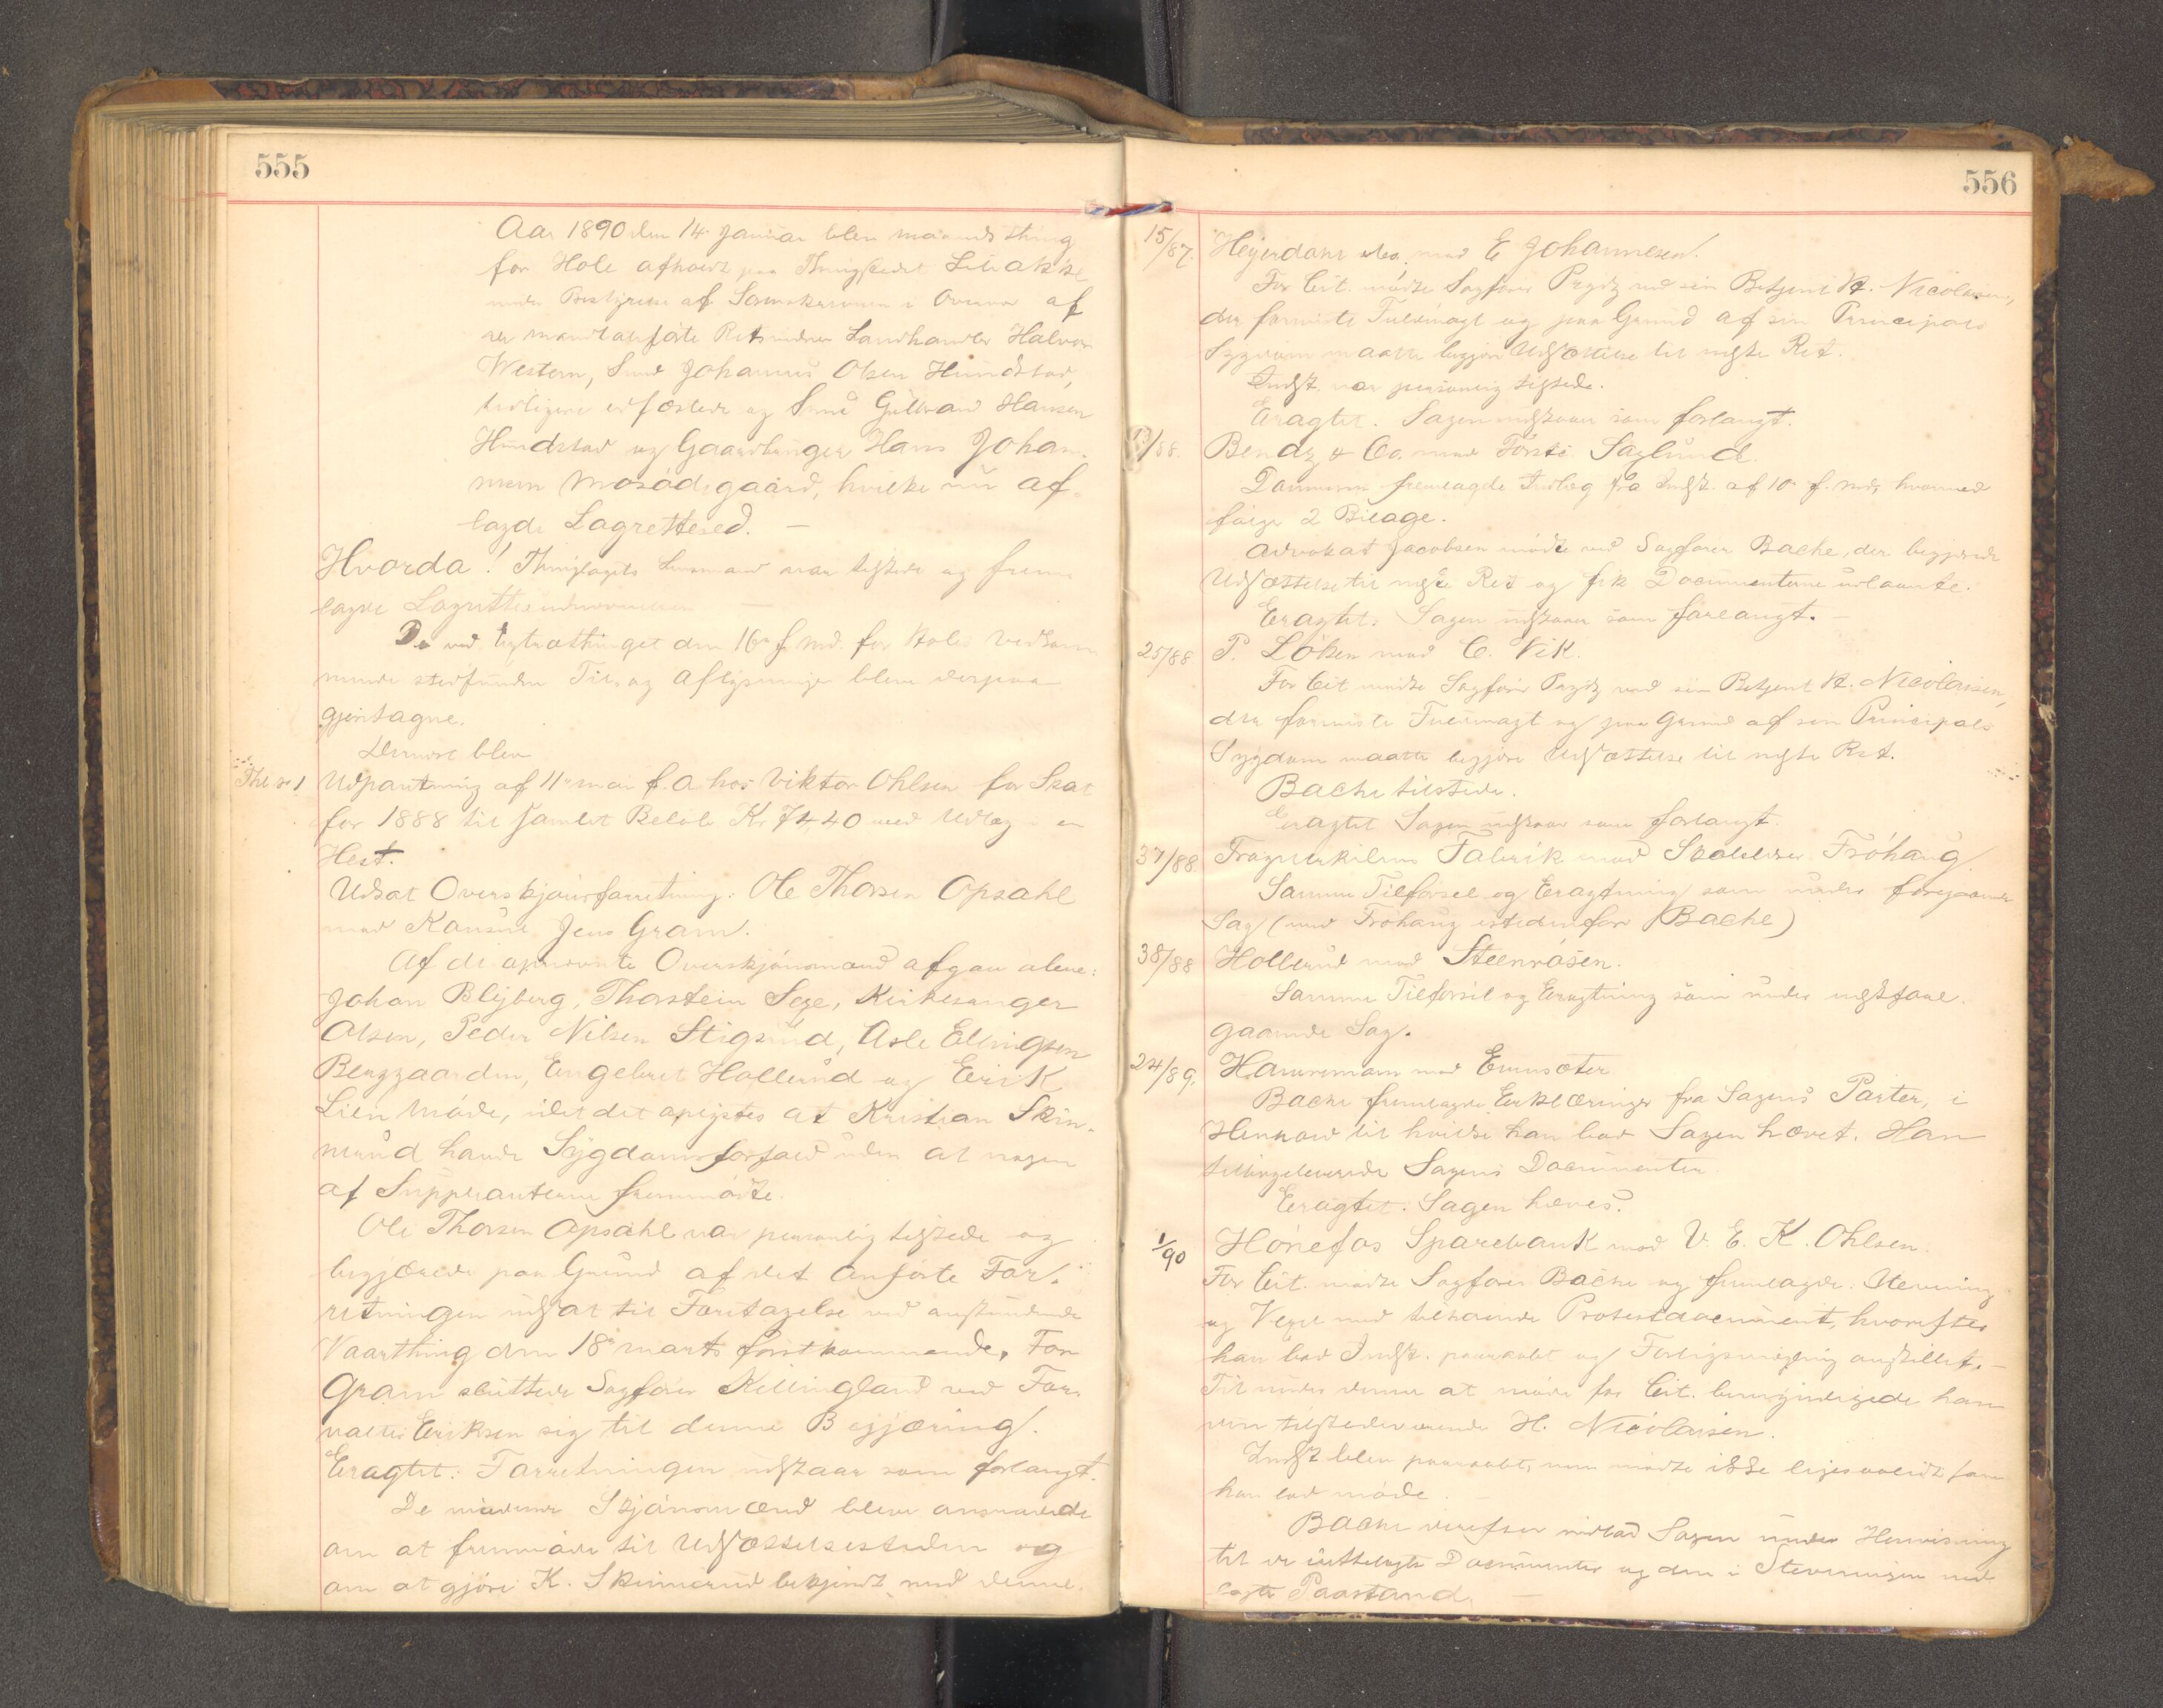 555
Aar 1890 den 14 Januar blev maanedsthing
for Hole afholdt paa Thingstedet Libakke
under Bestyrelse af Sorenskriveren i Overvær af
Retsvidner Landhandler Halvor
Western, Smed Johannes Olsen Hundstad,
tidligere edfæstede og Smed Gulbrand Hansen
Hundstad og Gaardbruger Hans Johan-
nesen Mosødegaard, hvilke nu af-
lagde Lagrettesed. —
Hvorda! Thinglagets Lensmand var tilstede og frem-
lagde Lagrettesudnævnelsen —
De ved Extrathinget den 16de f. Md. for Holes Vedkom-
mende stedfundne Til- og Aflysninger bleve derpaa
gjentagne.
Dernæst blev
Thl No 1 Udpantning af 11te mai f. A. hos Viktor Ohlsen for Skat
for 1888 til samlet Beløb Kr 74,40 med Udlæg i en
Hest.
Udsat Overskjønsforretning: Ole Thorsen Opsahl
mod Konsul Jens Gram.
Af de opnævnte Overskjønsmænd afgav alene:
Johan Blyberg, Thorstein Sexe, Kirkesanger
Olsen, Peder Nilsen Stigsrud, Asle Ellingsen
Berggaarden, Engebret Hollerud og Erik
Lien Møde, idet det oplystes at Kristian Skin-
nerud havde Sygdomsforfald uden at nogen
af Suppleanterne fremmødte.
Ole Thorsen Opsahl var personlig tilstede og
begjærede paa Grund af det anførte For-
retningen udsat til Foretagelse ved anstundende
Vaarthing den 18de marts førstkommende. For
Gram sluttede Sagfører Killingland ved For-
valter Eriksen sig til denne Begjæring.
Eragtet: Forretningen udstaar som forlangt.
De mødende Skjønsmænd bleve anmodede
om at fremmøde til Udsættelsestiden og
om at gjøre K. Skinnerud bekjendt med denne.
556
15/87. Heyerdahl mod E Johannesen.
For Cit. mødte Sagfører Prydz ved sin Betjent H. Nicolaisen,
der foreviste Fuldmagt og paa Grund af sin Principals
Sygdom maatte begjøre Udsættelse til næste Ret.
Indst. var personlig tilstede.
Eragtet. Sagen udstaar som forlangt.
/88. Bendz & Co. mod Første Saglund.
Dommeren fremlagde Indlæg fra Indst. af 10de f. Md, hvormed
følger 2 Bilage.
Advokat Jacobsen mødte ved Sagfører Bache, der begjærede
Udsættelse til næste Ret og fik Documenterne udlaante.
Eragtet. Sagen udstaar som forlangt. —
25/88 P. Løken mod C. Vik.
For Cit mødte Sagfører Prydz ved sin Betjent H. Nicolaisen,
der foreviste Fuldmagt og paa Grund af sin Principals
Sygdom maatte begjøre Udsættelse til næste Ret.
Bache tilstede.
Eragtet Sagen udstaar som forlangt.
37/88. Fabrik mod Frøhaug
Samme Tilførsel og Eragtning som under foregaaende
Sag (med Frøhaug istedenfor Bache)
38/88 Hollerud mod Steenrøsen.
Samme Tilførsel og Eragtning som under næstfore-
gaaende Sag.
24/89. Hannemann mod
Bache fremlagde Erklæringer fra Sagens Parter, i
Henhold til hvilke han bad Sagen hævet. Han
tilbageleverede Sagens Documenter.
Eragtet. Sagen hæves.
1/90 Hønefos Sparebank mod V. E. K. Ohlsen.
For Cit. mødte Sagfører Bache og fremlagde Stevning
og Vexel med tilhørende Protestdocument, hvorefter
han bad Indst. paaraabt og Forligsmægling anstillet. —
Til under denne at møde for Cit. bemyndigede han
den tilstedeværende H. Nicolaisen.
Indst blev paaraabt, men mødte ikke ligesaalidt som
han lod møde. —
Bache derefter indlod Sagen under Henvisning
til de fremlagte Documenter og den i Stevningen ned-
lagte Paastand. —